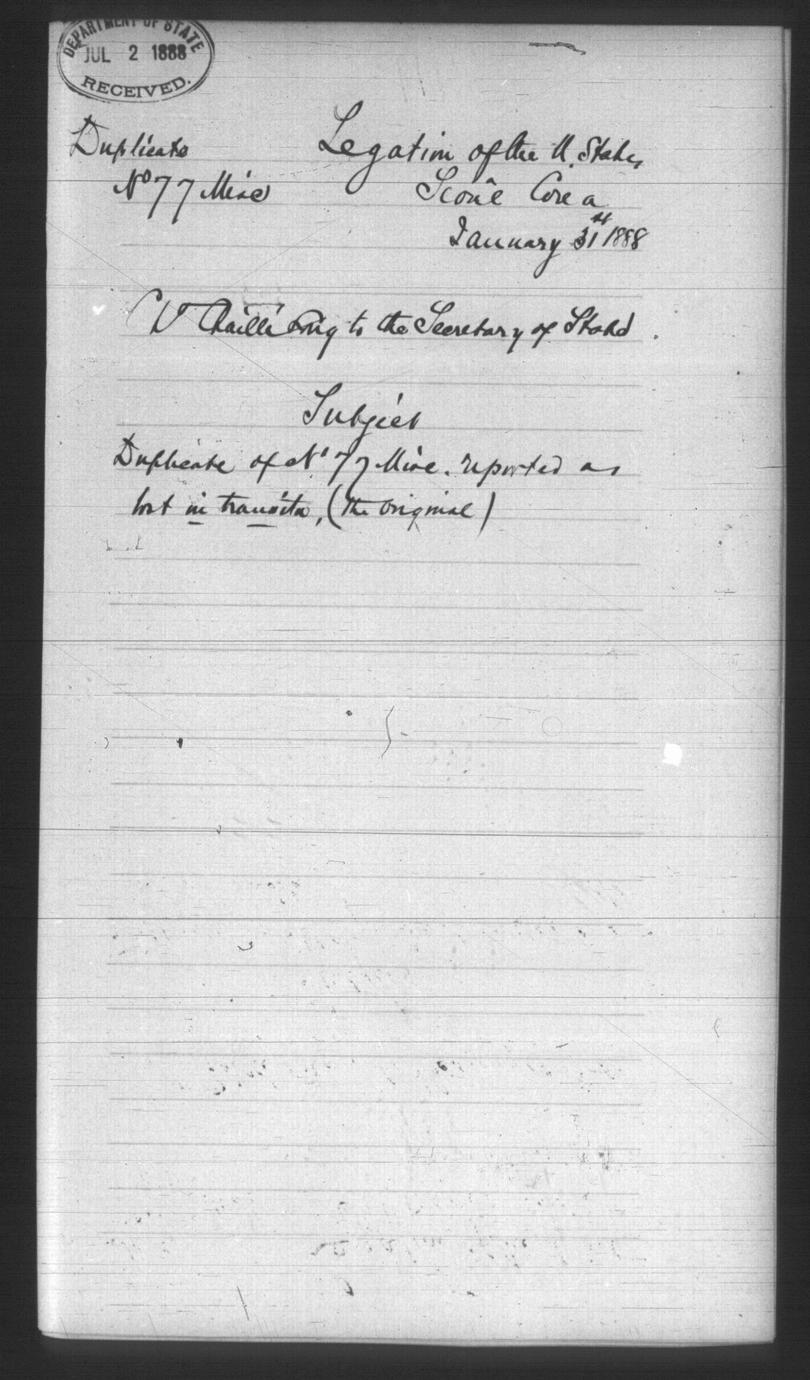 DEPARTMENT OF STATE
JUL 2 1888
RECEIVED.
Duplicate
Legation of the U. States
No 77 Misc
Séoul Corea
January 31st 1888
Chaillé Long to the Secretary of State.
Subject
Duplicate of No 77 Misc. reported as
lost in transitu, (the original)